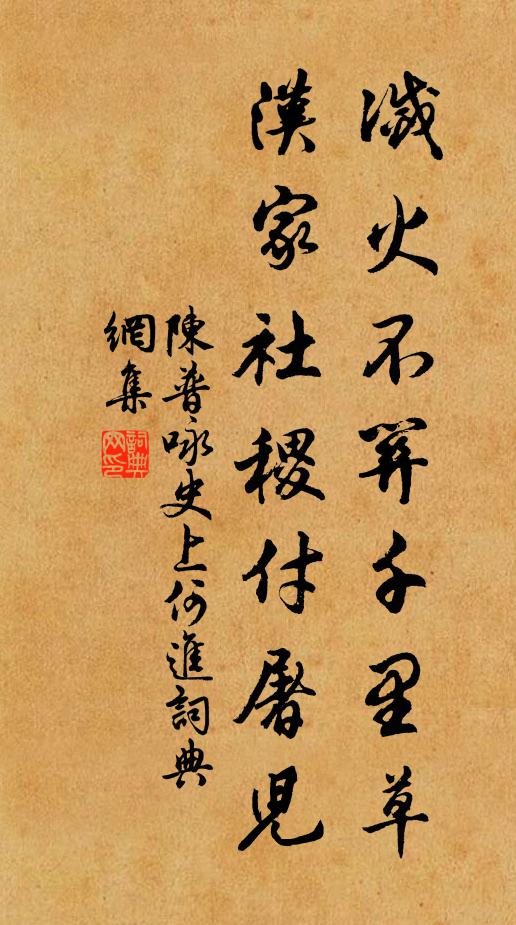 滅火不算千里草
漢家社稷付屠兒
陳普咏史上何進詞典
網集
詞典
网印